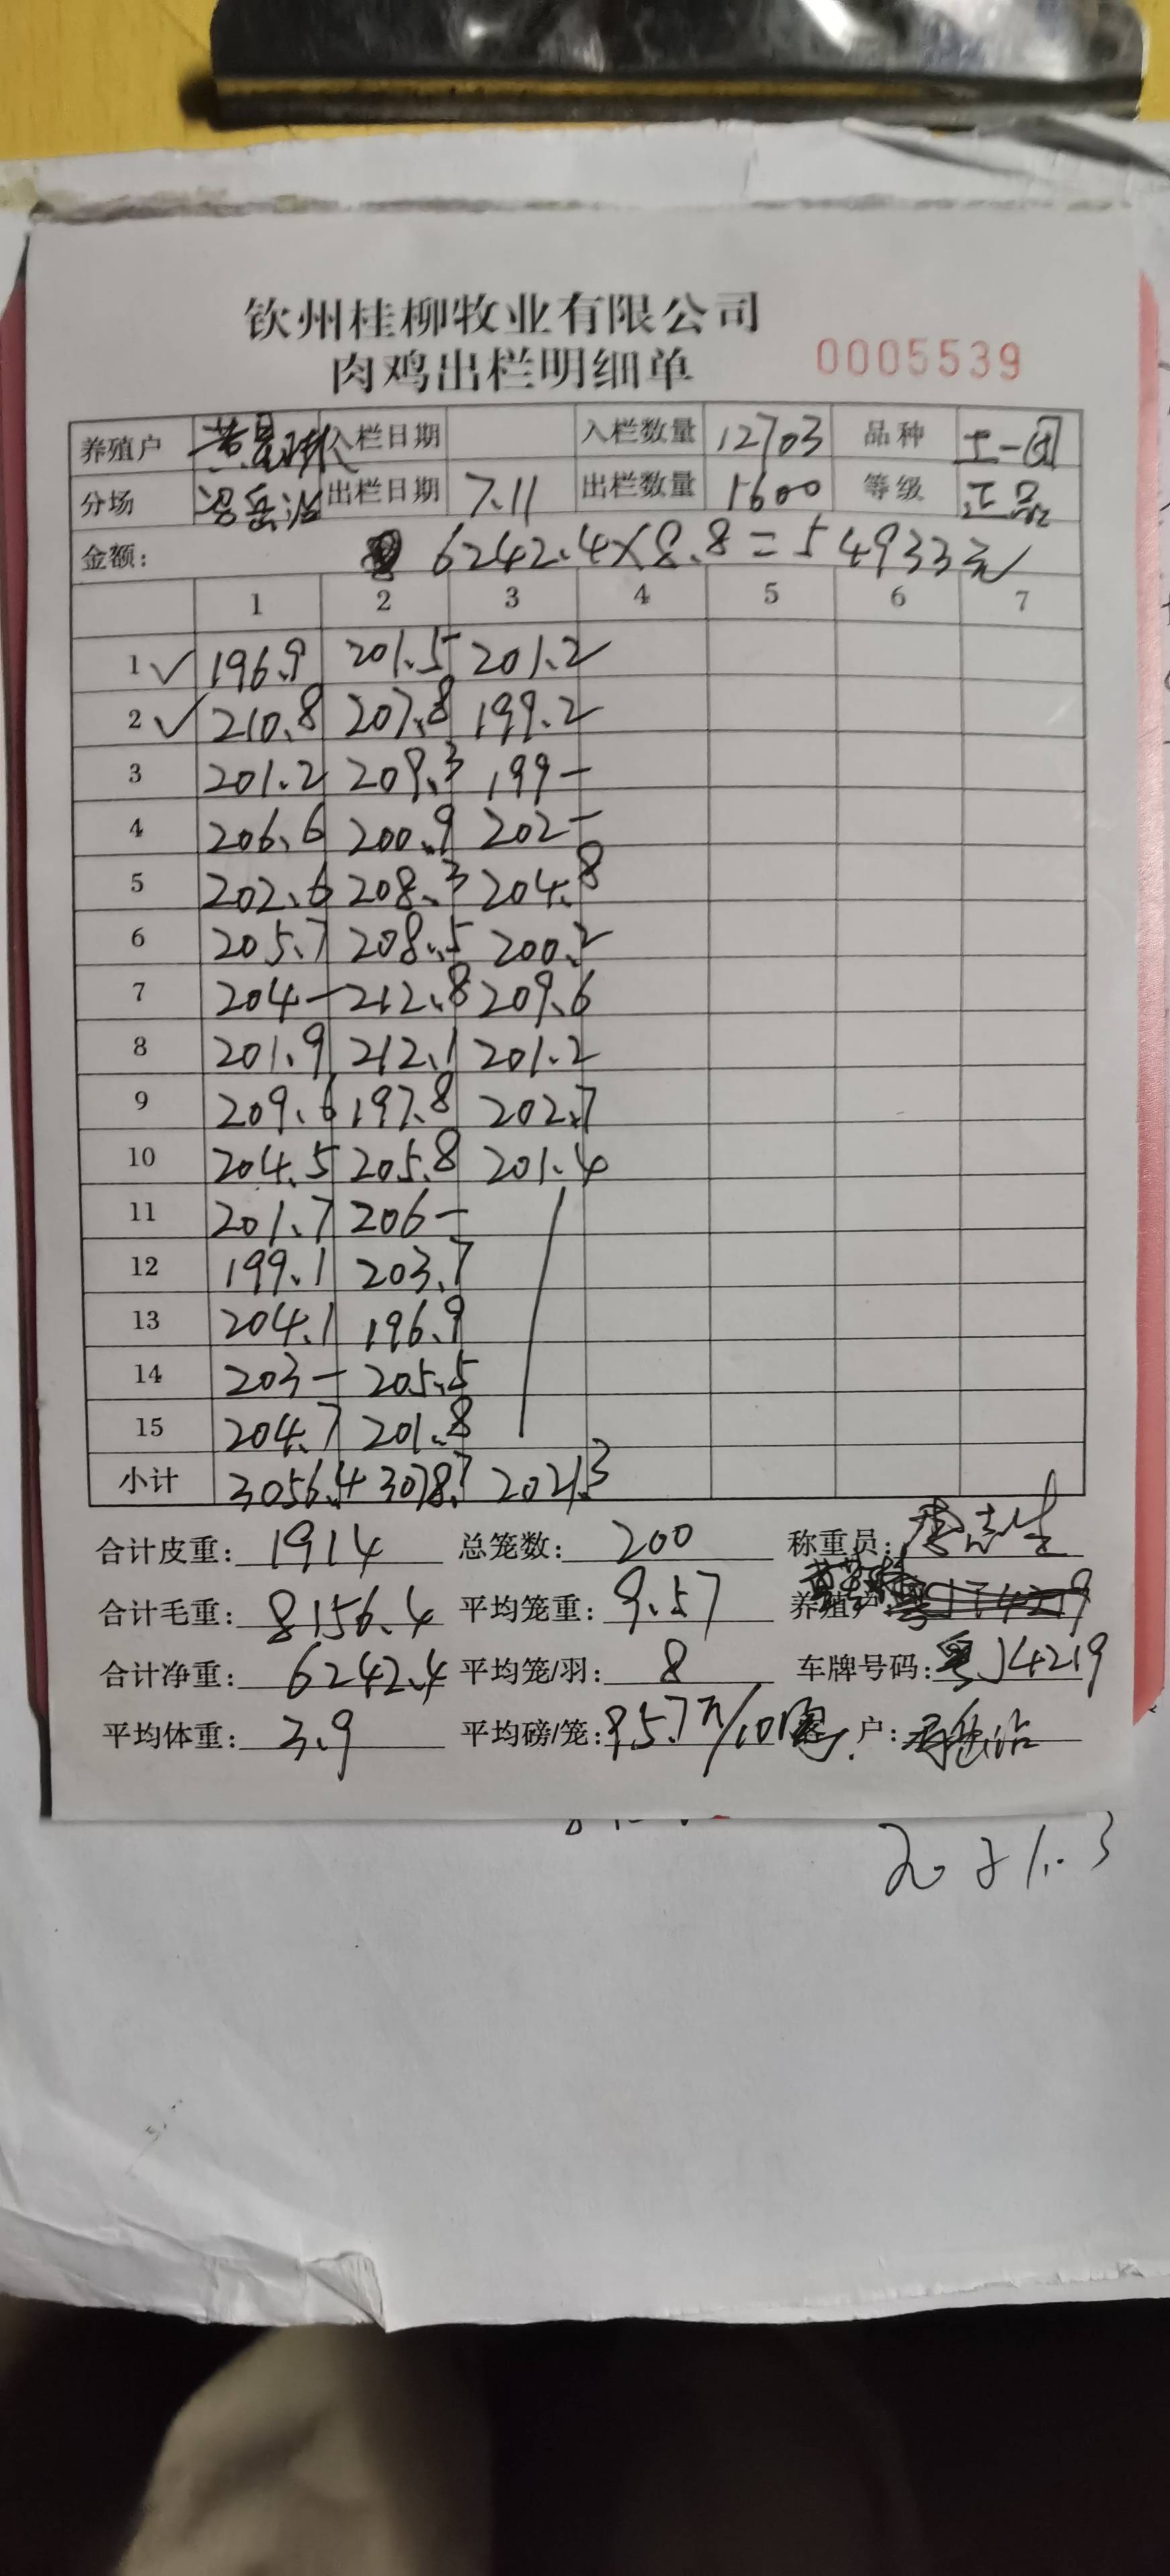 钦州桂柳牧业有限公司
肉鸡出栏明细单 0005539
养殖户 入栏日期 入栏数量 12703 品种 土一
分场 出栏日期 7.11 出栏数量 1600 等级 正品
金额: 6242.4×8.8=54933元
1 2 3 4 5 6 7
1 ✓ 196.9 201.5 201.2
2 ✓ 210.8 207.8 199.2
3 201.2 209.3 199-
4 206.6 200.9 202-
5 202.6 208.3 204.8
6 205.7 208.5 200.2
7 204- 212.8 209.6
8 201.9 212.1 201.2
9 209.6 197.8 202.7
10 204.5 205.8 201.4
11 201.7 206-
12 199.1 203.7
13 204.1 196.9
14 203- 205.5
15 204.7 201.8
小计 3056.4 3078.7 2021.3
合计皮重: 1914 总笼数: 200 称重员: 李志生
合计毛重: 8156.4 平均笼重: 9.57 养殖户
合计净重: 6242.4 平均笼/羽: 8 车牌号码: 粤J4219
平均体重: 3.9 平均磅/笼: 95.7斤/10 户:
2021.3